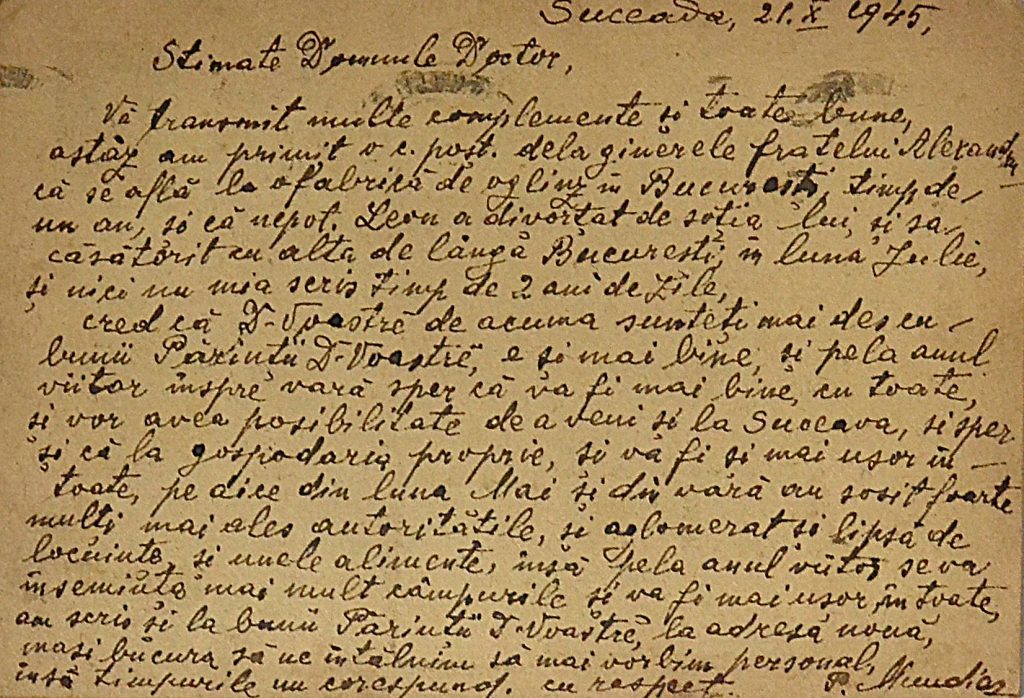 Suceava, 21.X 1945,
Stimate Domnule Doctor,
Vă transmit multe complemente si toate bune,
astăz am primit o c. post. dela ginerele fratelui Alexandru
că se află la o fabrică de oglinz in Bucuresti, timp de
un an, si că nepot. Leon a divortat de sotia lui, si sa
căsătorit cu alta de lângă Bucuresti, in luna Julie,
și nici nu mia scris timp de 2 ani de zile,
cred că D-Voastră de acuma sunteti mai des cu
bunii Părintii D-Voastră, e si mai bine, si pela anul
viitor inspre vară sper că va fi mai bine, cu toate,
si vor avea posibilitate de a veni si la Suceava, si sper
și că la gospodaria proprie, si vă fi si mai usor in
toate, pe aice din luna Mai si din vară au sosit foarte
multi mai ales autoritătile, si aglomerat si lipsă de
locuinte, si unele alimente, insă pela anul viitor se va
insemiuta mai mult câmpurile si va fi mai usor, in toate,
am scris si la bunii Părintii D-Voastră, la adresă nouă,
masi bucura să ne intâlnim să mai vorbim personal,
insă timpurile nu corespund. cu respect. P.